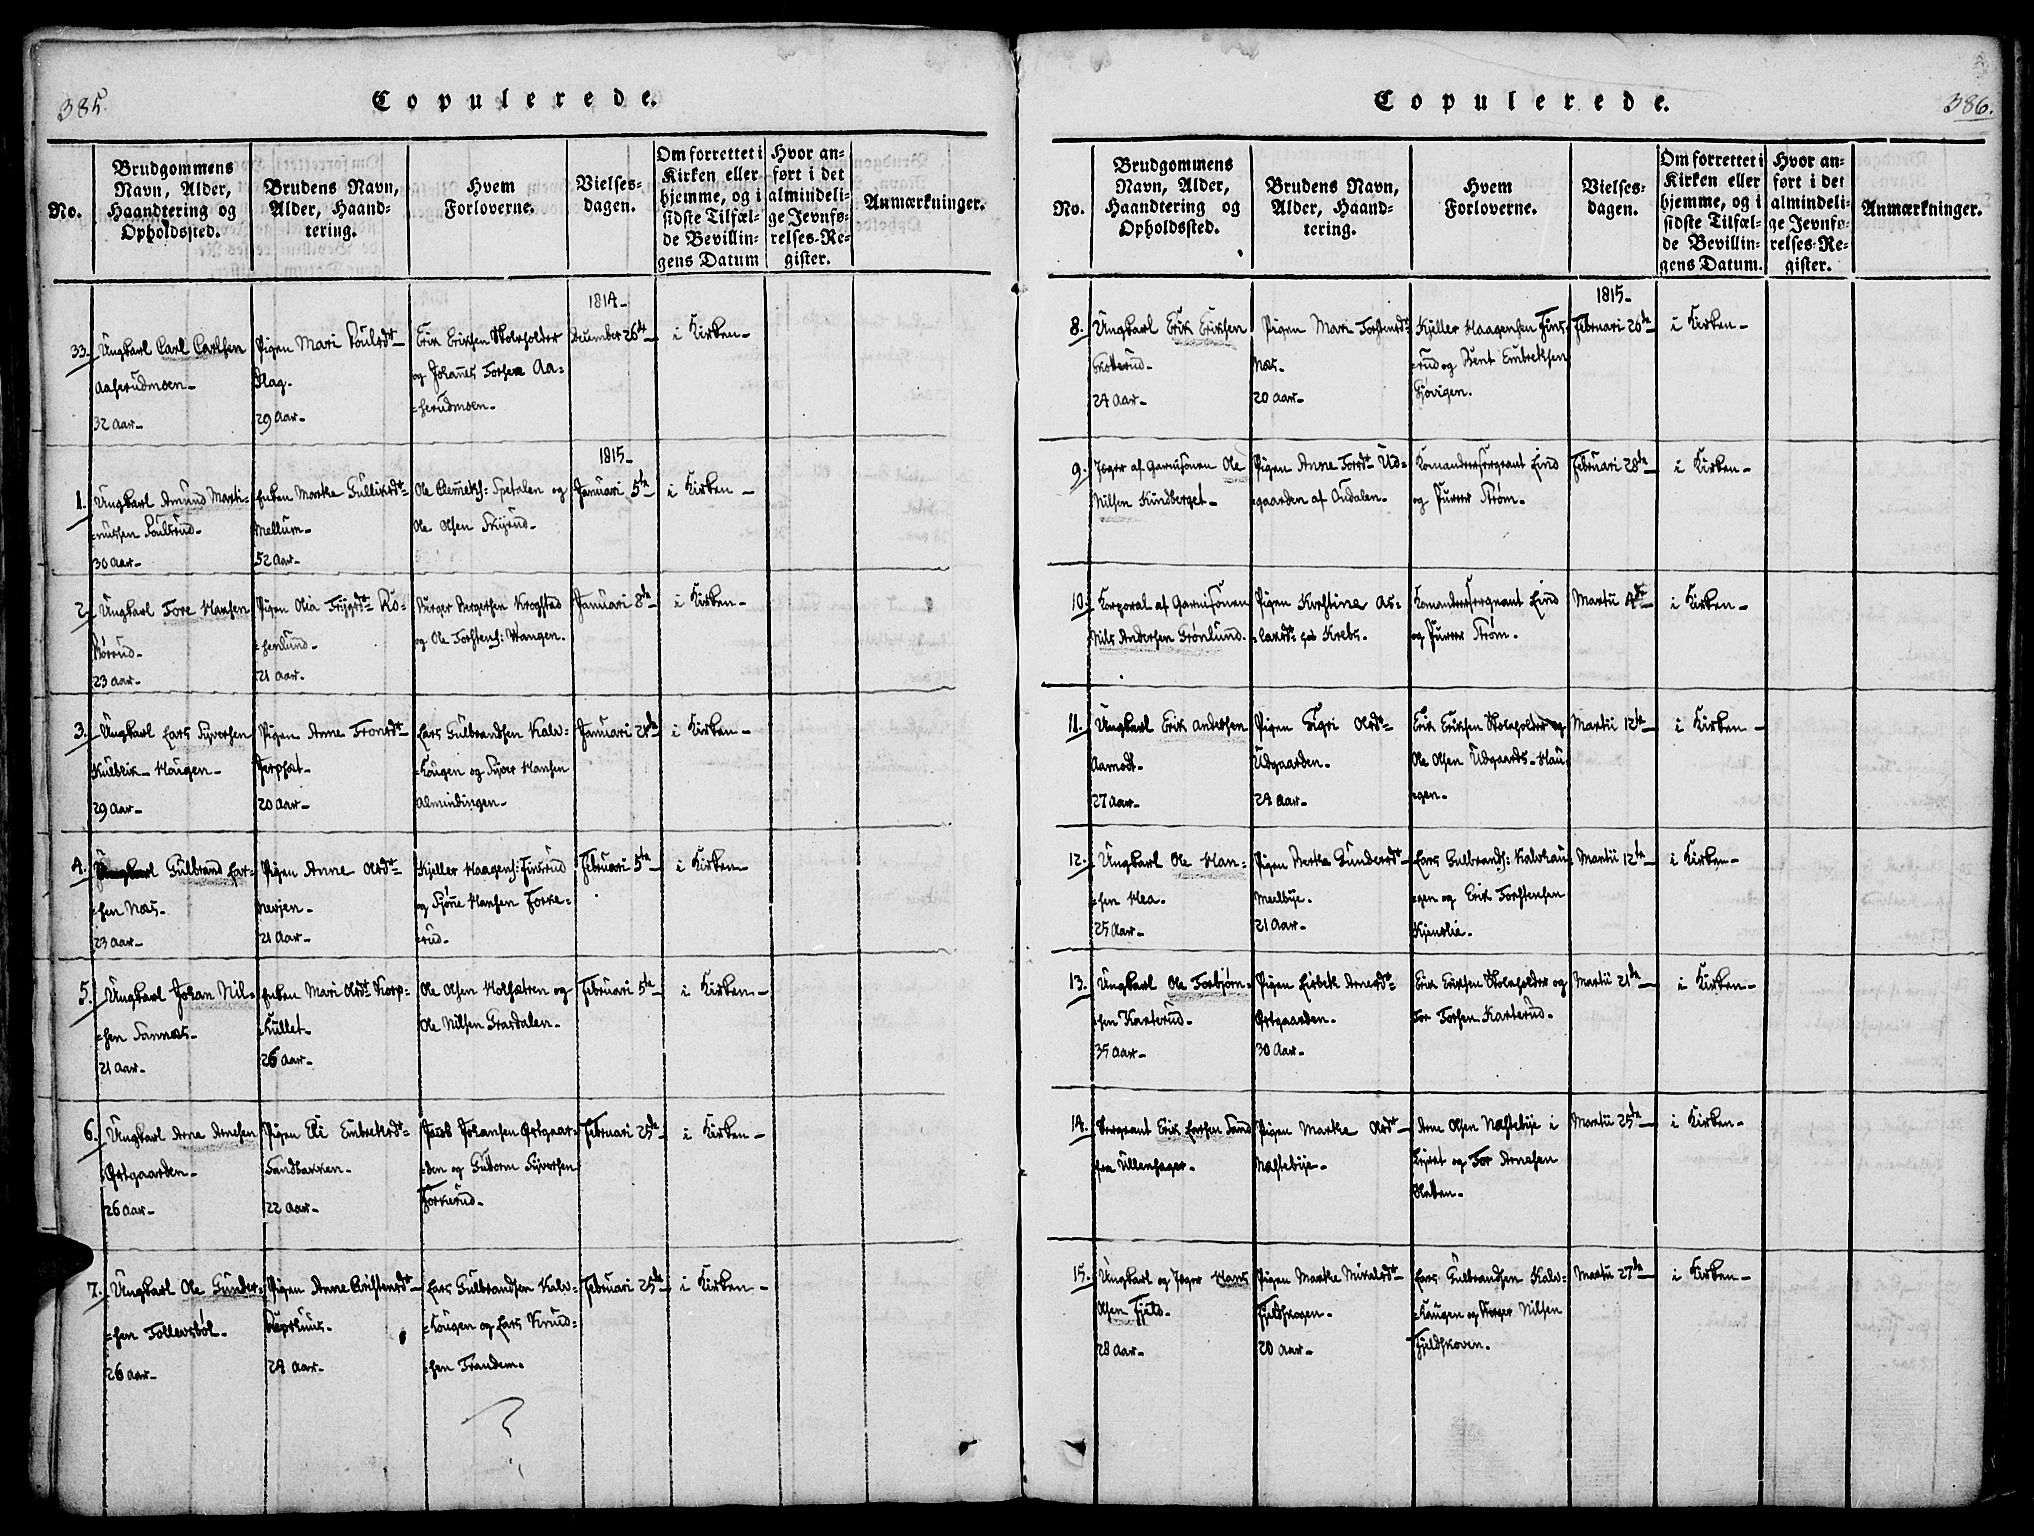 385.
Copulerede.
No.
Brudgommens Navn, Alder, Haandtering og Opholdssted.
Brudens Navn, Alder, Haandtering.
Hvem Forloverne.
Vielsesdagen.
Om forrettet i Kirken eller hjemme, og i sidste Tilfælde Bevillingens Datum
Hvor anført i det almindelige Jevnførelses-Register.
Anmærkninger.
1814
33. Ungkarl Carl Carlsen Aaserudmoen 32 Aar
Pigen Mari Poulsdt Hag. 29 Aar
Erik Eriksen Skoleholder og Johanes Torsen Aa=serudmoen
December 26de
i Kirken
1815
1. Ungkarl Amund Marti=nussen Poulsrud 30 Aar
Enken Marthe Gulliksdt Mellum 52 Aar
Ole Clemets: Spetalen og Ole Olsen Skyrud
Januari 5te
i Kirken
2. Ungkarl Tore Hansen Börrud 23 Aar
Pigen Olia Trygsdt Ro=senlund 21 Aar
Börger Börgersen Krogstad og Ole Torstens: Wangen.
Januari 8de
i Kirken
3. Ungkarl Lars Syversen Kulblik-Hougen 29 Aar
Pigen Anne Tronsdt Jerpset 20 Aar
Lars Gulbrandsen Kalv=hougen og Syver Hansen Almindingen
Januari 24de
i Kirken
4. Ungkarl Gulbrand Lar=sen Næs 23 Aar
Pigen Anne Olsdt nevjen 21 Aar
Kjeller Haagens: Finsrud og Syöne Hansen Torke=rud
Februari 5te
i Kirken
5. Ungkarl Johan Nil=sen Sannæs 21 Aar
Enken Mari Olsdt Korp=kullet 26 Aar
Ole Olsen Holsætren og Ole Nilsen Grasdalen
Februari 5te
i Kirken
6. Ungkarl Arne Arnesen Östgaarden 26 Aar
Pigen Eli Embreksdt Sandbakken 22 Aar
Jacob Johansen Östgaar=den og Guttorm Syversen Torkerud
Februari 25de
i Kirken
7. Ungkarl Ole Gunder=sen Tollevsböl. 26 Aar
Pigen Anne Christensdt 24 Aar
Lars Gulbrandsen Kalv=hougen og Lars Knud=sen Trandem
Februari 25de
i Kirken
386.
Copulerede.
No.
Brudgommens Navn, Alder, Haandtering og Opholdssted.
Brudens Navn, Alder, Haandtering.
Hvem Forloverne.
Vielsesdagen.
Om forrettet i Kirken eller hjemme, og i sidste Tilfælde Bevillingens Datum.
Hvor anført i det almindelige Jevnførelses-Register.
Anmærkninger.
1815
8. Ungkarl Erik Eriksen Skotterud 24 Aar
Pigen Mari Torstensdt Næs 20 Aar
Kjeller Haagensen Fins=rud og Bent Embreksen Sjövigen.
Februari 26de
i Kirken
9. Jæger af Garnisonen Ole Nilsen Kundberget
Pigen Anne Torsdt Ud=gaarden af Oudalen
Komandeersergeant Lind og Fureer Ström
Februari 28de
i Kirken
10. Korporal af Garnisonen Nils Andersen Grönlund.
Pigen Kirstine As=laksdt paa Krebs.
Komandeersergeant Lind og Fureer Ström.
Martii 4de
i Kirken
11. Ungkarl Erik Andersen Aamodt 27 Aar
Pigen Sigri Olsdt Udgaarden. 24 Aar
Erik Eriksen Skoleholder og Ole Olsen Udgaards-Hau=gen
Martii 12te
i Kirken
12. Ungkarl Ole Han=sen Mea. 25 Aar
Pigen Berthe Gundersdt Meelbye. 21 Aar
Lars Gulbrands: Kalvhau=gen og Erik Torstensen Kjenslie.
Martii 12te
i Kirken
13. Ungkarl Ole Torbjörn=sen Karterud 35 Aar
Pigen Lisbek Arnesdt Östgaarden. 30 Aar
Erik Eriksen Skoleholder og Tor Torsen Karterud
Martii 21de
i Kirken
14. Sergeant Erik Larsen Sand fra Ullensager.
Pigen Marthe Olsdt Næstebye
Arne Olsen Næstebye i og Tor Arnesen Slatten
Martii 25de
i Kirken
15. Ungkarl og Jæger Hans Olsen Fjeld 28 Aar
Pigen Marthe Mikalsdt Fjeldskoven 20 Aar
Lars Gulbrandsen Kalv=haugen og Nilsen Fjeldskoven.
Martii 27de
i Kirken